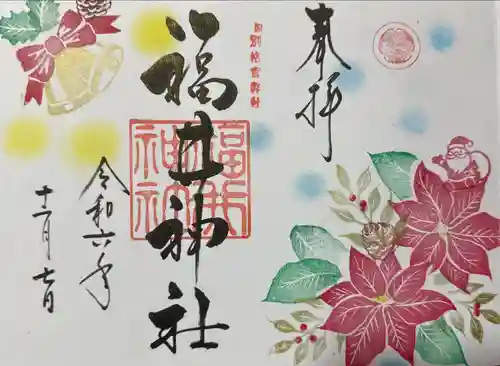 奉拝
旧別格官幣社
福井神社
福井神社
令和六年
十二月七日